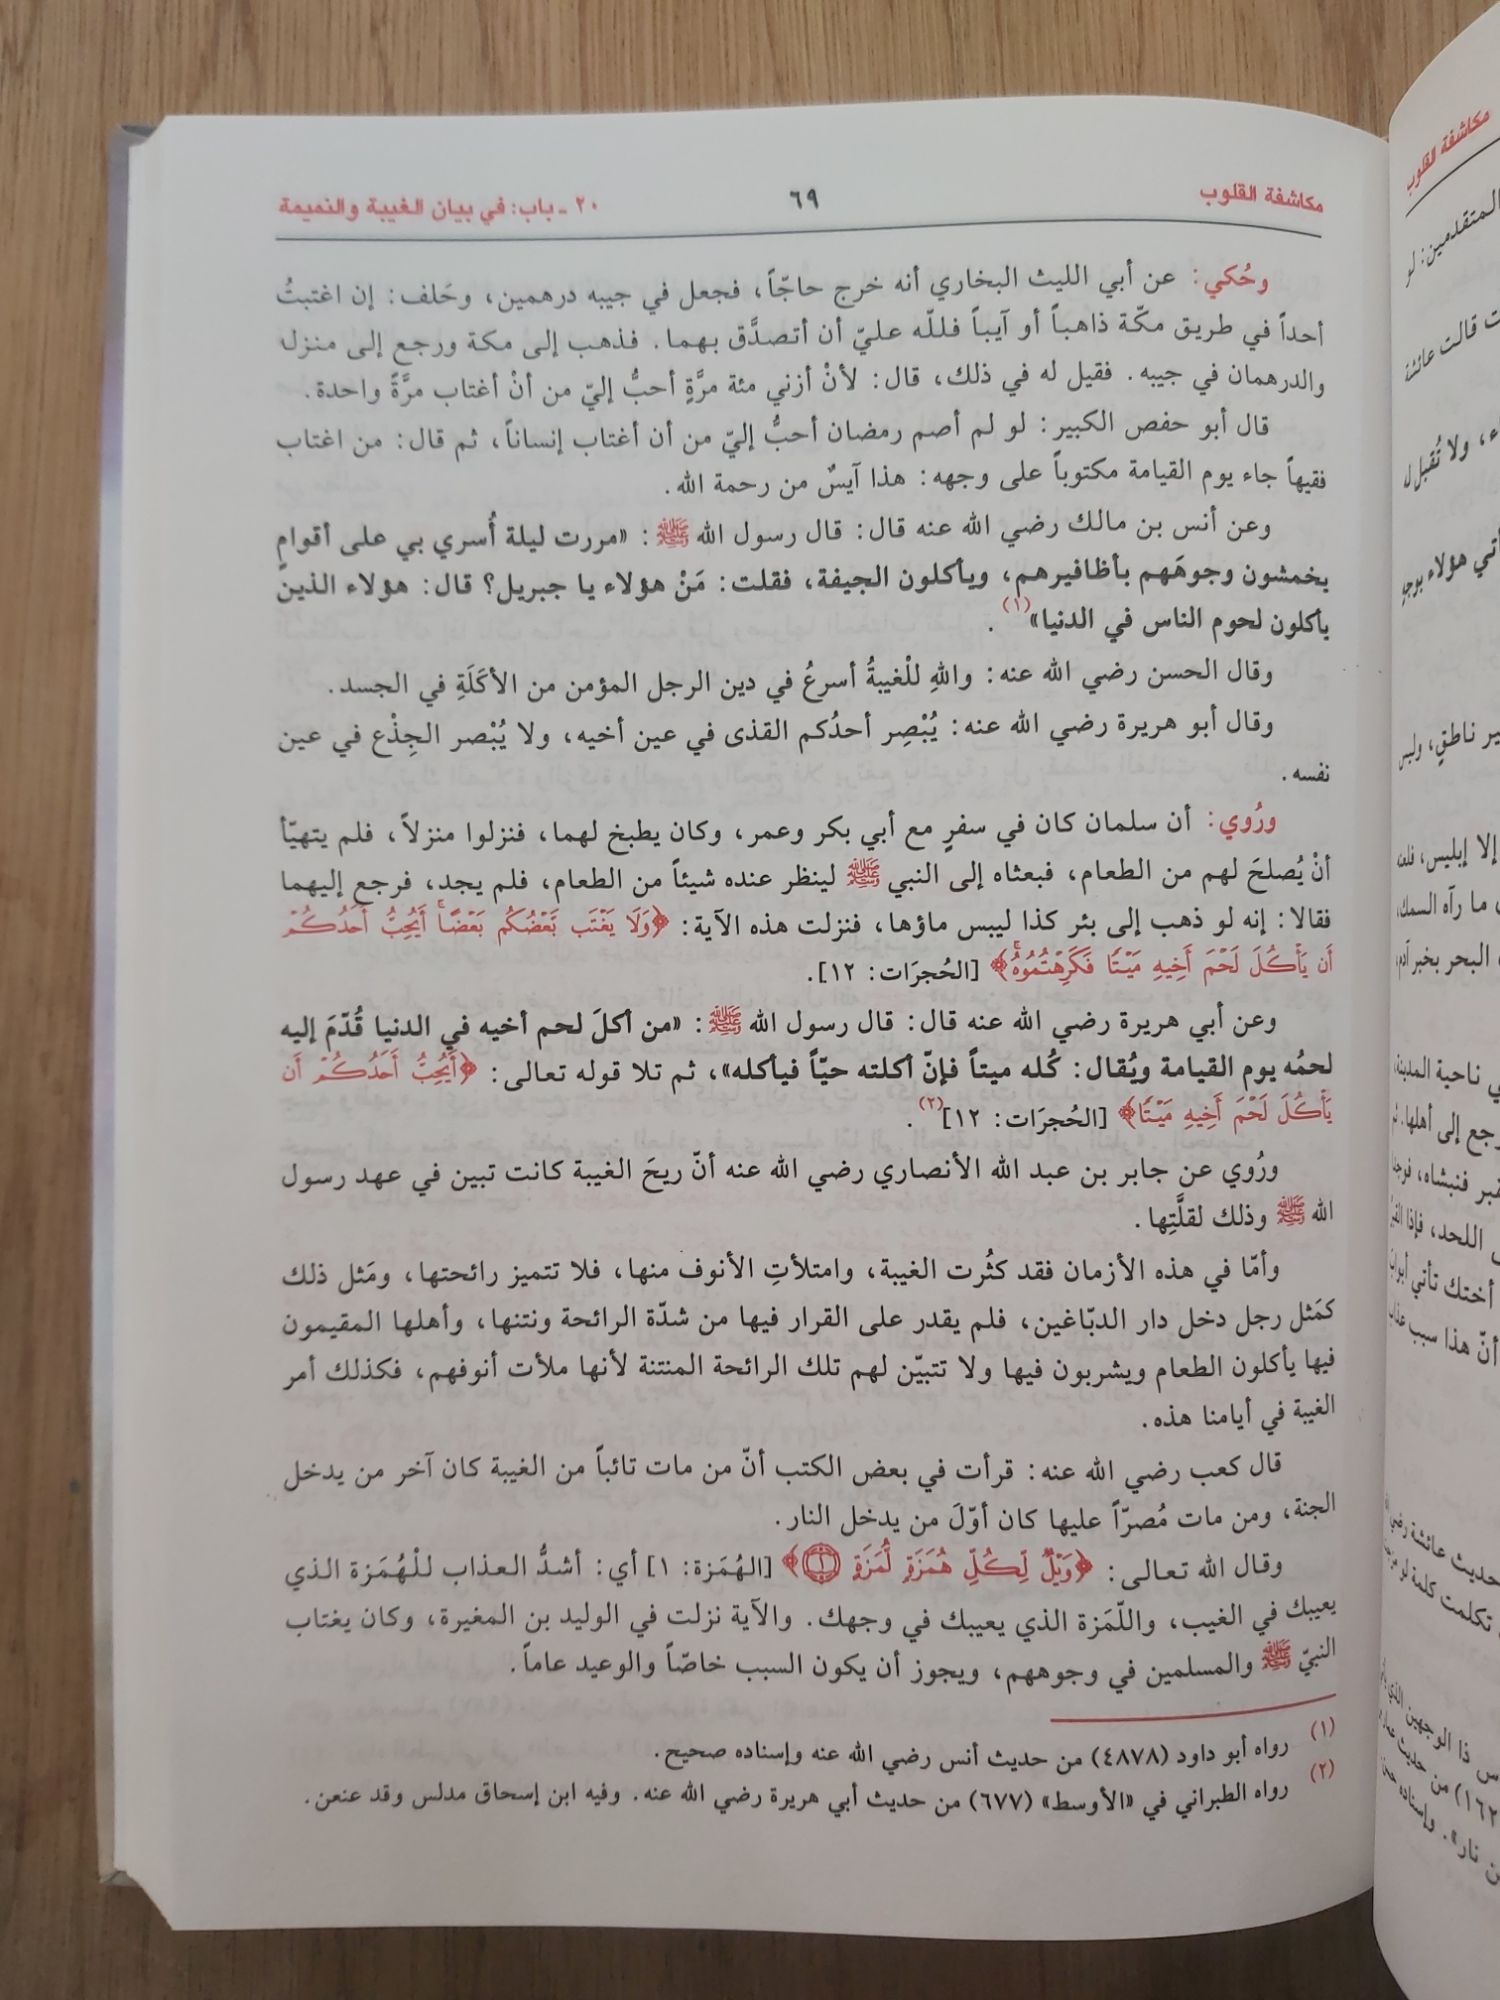 مكاشفة القلوب ٦٩ ٢٠ - باب: في بيان الغيبة والنميمة
وحُكي: عن أبي الليث البخاري أنه خرج حاجّاً، فجعل في جيبه درهمين، وحَلف: إن اغتبتُ
أحداً في طريق مكّة ذاهباً أو آيباً فللّه عليّ أن أتصدَّق بهما. فذهب إلى مكة ورجع إلى منزله
والدرهمان في جيبه. فقيل له في ذلك، قال: لأنْ أزني مئة مرَّةٍ أحبُّ إليّ من أنْ أغتاب مرَّةً واحدة.
قال أبو حفص الكبير: لو لم أصم رمضان أحبُّ إليّ من أن أغتاب إنساناً، ثم قال: من اغتاب
فقيهاً جاء يوم القيامة مكتوباً على وجهه: هذا آيسٌ من رحمة الله.
وعن أنس بن مالك رضي الله عنه قال: قال رسول الله ﷺ: «مررت ليلة أُسري بي على أقوامٍ
يخمشون وجوهَهم بأظافيرهم، ويأكلون الجيفة، فقلت: مَنْ هؤلاء يا جبريل؟ قال: هؤلاء الذين
يأكلون لحوم الناس في الدنيا»(١).
وقال الحسن رضي الله عنه: واللهِ للْغيبةُ أسرعُ في دين الرجل المؤمن من الأكَلَةِ في الجسد.
وقال أبو هريرة رضي الله عنه: يُبْصِر أحدُكم القذى في عين أخيه، ولا يُبْصر الجِذْع في عين
نفسه.
ورُوي: أن سلمان كان في سفرٍ مع أبي بكر وعمر، وكان يطبخ لهما، فنزلوا منزلاً، فلم يتهيّأ
أنْ يُصلحَ لهم من الطعام، فبعثاه إلى النبي ﷺ لينظر عنده شيئاً من الطعام، فلم يجد، فرجع إليهما
فقالا: إنه لو ذهب إلى بئر كذا ليبس ماؤها، فنزلت هذه الآية: ﴿وَلَا يَغْتَب بَّعْضُكُم بَعْضًا ۚ أَيُحِبُّ أَحَدُكُمْ
أَن يَأْكُلَ لَحْمَ أَخِيهِ مَيْتًا فَكَرِهْتُمُوهُ ۚ﴾ [الحُجرَات: ١٢].
وعن أبي هريرة رضي الله عنه قال: قال رسول الله ﷺ: «من أكلَ لحم أخيه في الدنيا قُدّمَ إليه
لحمُه يوم القيامة ويُقال: كُله ميتاً فإنّ أكلته حيّاً فيأكله»، ثم تلا قوله تعالى: ﴿أَيُحِبُّ أَحَدُكُمْ أَن
يَأْكُلَ لَحْمَ أَخِيهِ مَيْتًا﴾ [الحُجرَات: ١٢](٢).
ورُوي عن جابر بن عبد الله الأنصاري رضي الله عنه أنّ ريحَ الغيبة كانت تبين في عهد رسول
الله ﷺ وذلك لقلَّتِها.
وأمّا في هذه الأزمان فقد كثُرت الغيبة، وامتلأتِ الأنوف منها، فلا تتميز رائحتها، ومَثل ذلك
كمَثل رجل دخل دار الدبّاغين، فلم يقدر على القرار فيها من شدّة الرائحة ونتنها، وأهلها المقيمون
فيها يأكلون الطعام ويشربون فيها ولا تتبيّن لهم تلك الرائحة المنتنة لأنها ملأت أنوفهم، فكذلك أمر
الغيبة في أيامنا هذه.
قال كعب رضي الله عنه: قرأت في بعض الكتب أنّ من مات تائباً من الغيبة كان آخر من يدخل
الجنة، ومن مات مُصرّاً عليها كان أوّلَ من يدخل النار.
وقال الله تعالى: ﴿وَيْلٌ لِّكُلِّ هُمَزَةٍ لُّمَزَةٍ ١﴾ [الهُمَزة: ١] أي: أشدُّ العذاب للْهُمَزة الذي
يعيبك في الغيب، واللّمَزة الذي يعيبك في وجهك. والآية نزلت في الوليد بن المغيرة، وكان يغتاب
النبيّ ﷺ والمسلمين في وجوههم، ويجوز أن يكون السبب خاصّاً والوعيد عاماً.
(١) رواه أبو داود (٤٨٧٨) من حديث أنس رضي الله عنه وإسناده صحيح.
(٢) رواه الطبراني في «الأوسط» (٦٧٧) من حديث أبي هريرة رضي الله عنه. وفيه ابن إسحاق مدلس وقد عنعن.
مكاشفة القلوب
المتقدمين: لو
قالت عائشة
ولا تُقبل
هؤلاء بوجهٍ
ناطقٍ، وليس
إلا إبليس، فلعنه
ما رآه السمك
البحر بخبر آدم
ناحية المدينة
رجع إلى أهلها
فنبشاه، فوجد
اللحد، فإذا القبر
أختك تأتي أبواب
أنّ هذا سبب عذاب
حديث عائشة رضي
تكلمت كلمة لو
ذا الوجهين الذي
من حديث
نار». وإسناده